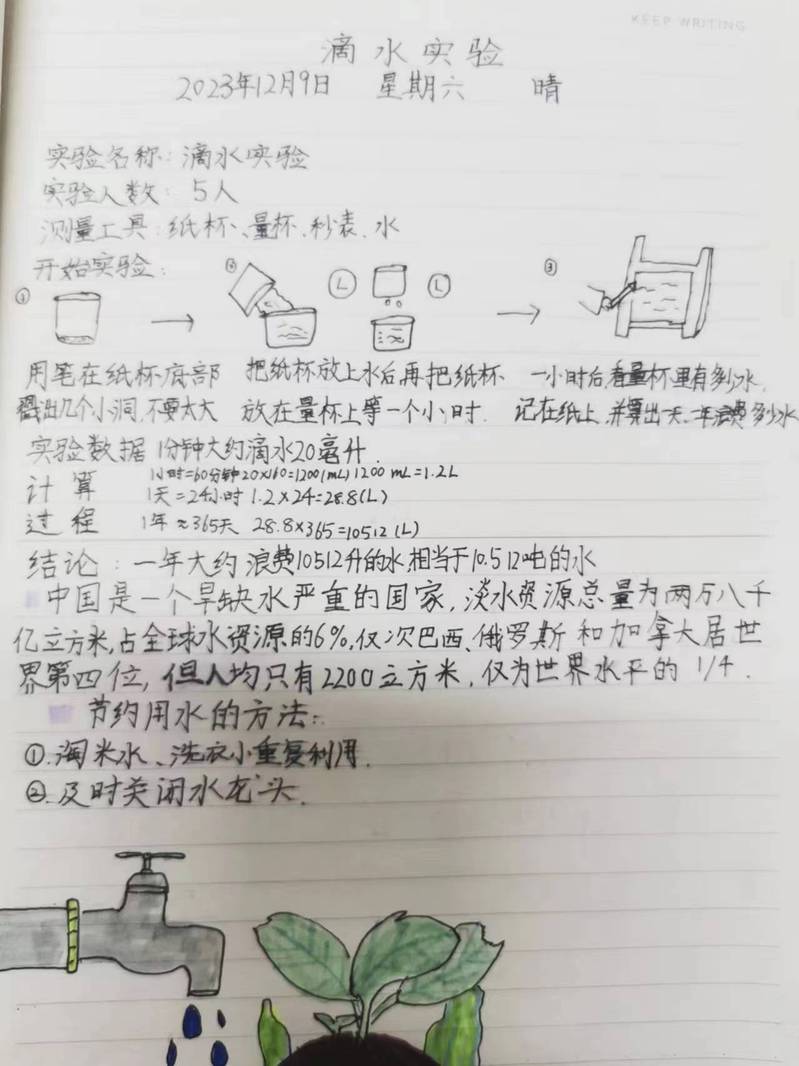 KEEP WRITING
滴水实验
2023年12月9日 星期六 晴
实验名称：滴水实验
实验人数：5人
测量工具：纸杯、量杯、秒表、水
开始实验：
① → ② L L → ③
用笔在纸杯底部 把纸杯放上水后,再把纸杯 一小时后,看量杯里有多少水,
戳出几个小洞,不要太大 放在量杯上等一个小时. 记在纸上,并算出一天、一年浪费多少水
实验数据 1分钟大约滴水20毫升.
1小时=60分钟 20×60=1200(mL) 1200 mL=1.2L
计算 1天=24小时 1.2×24=28.8(L)
过程 1年≈365天 28.8×365=10512(L)
结论：一年大约浪费10512升的水相当于10.512吨的水
中国是一个旱缺水严重的国家,淡水资源总量为两万八千
亿立方米,占全球水资源的6%,仅次巴西、俄罗斯和加拿大居世
界第四位,但人均只有2200立方米,仅为世界水平的1/4.
节约用水的方法：
①.淘米水、洗衣小重复利用.
②.及时关闭水龙头.